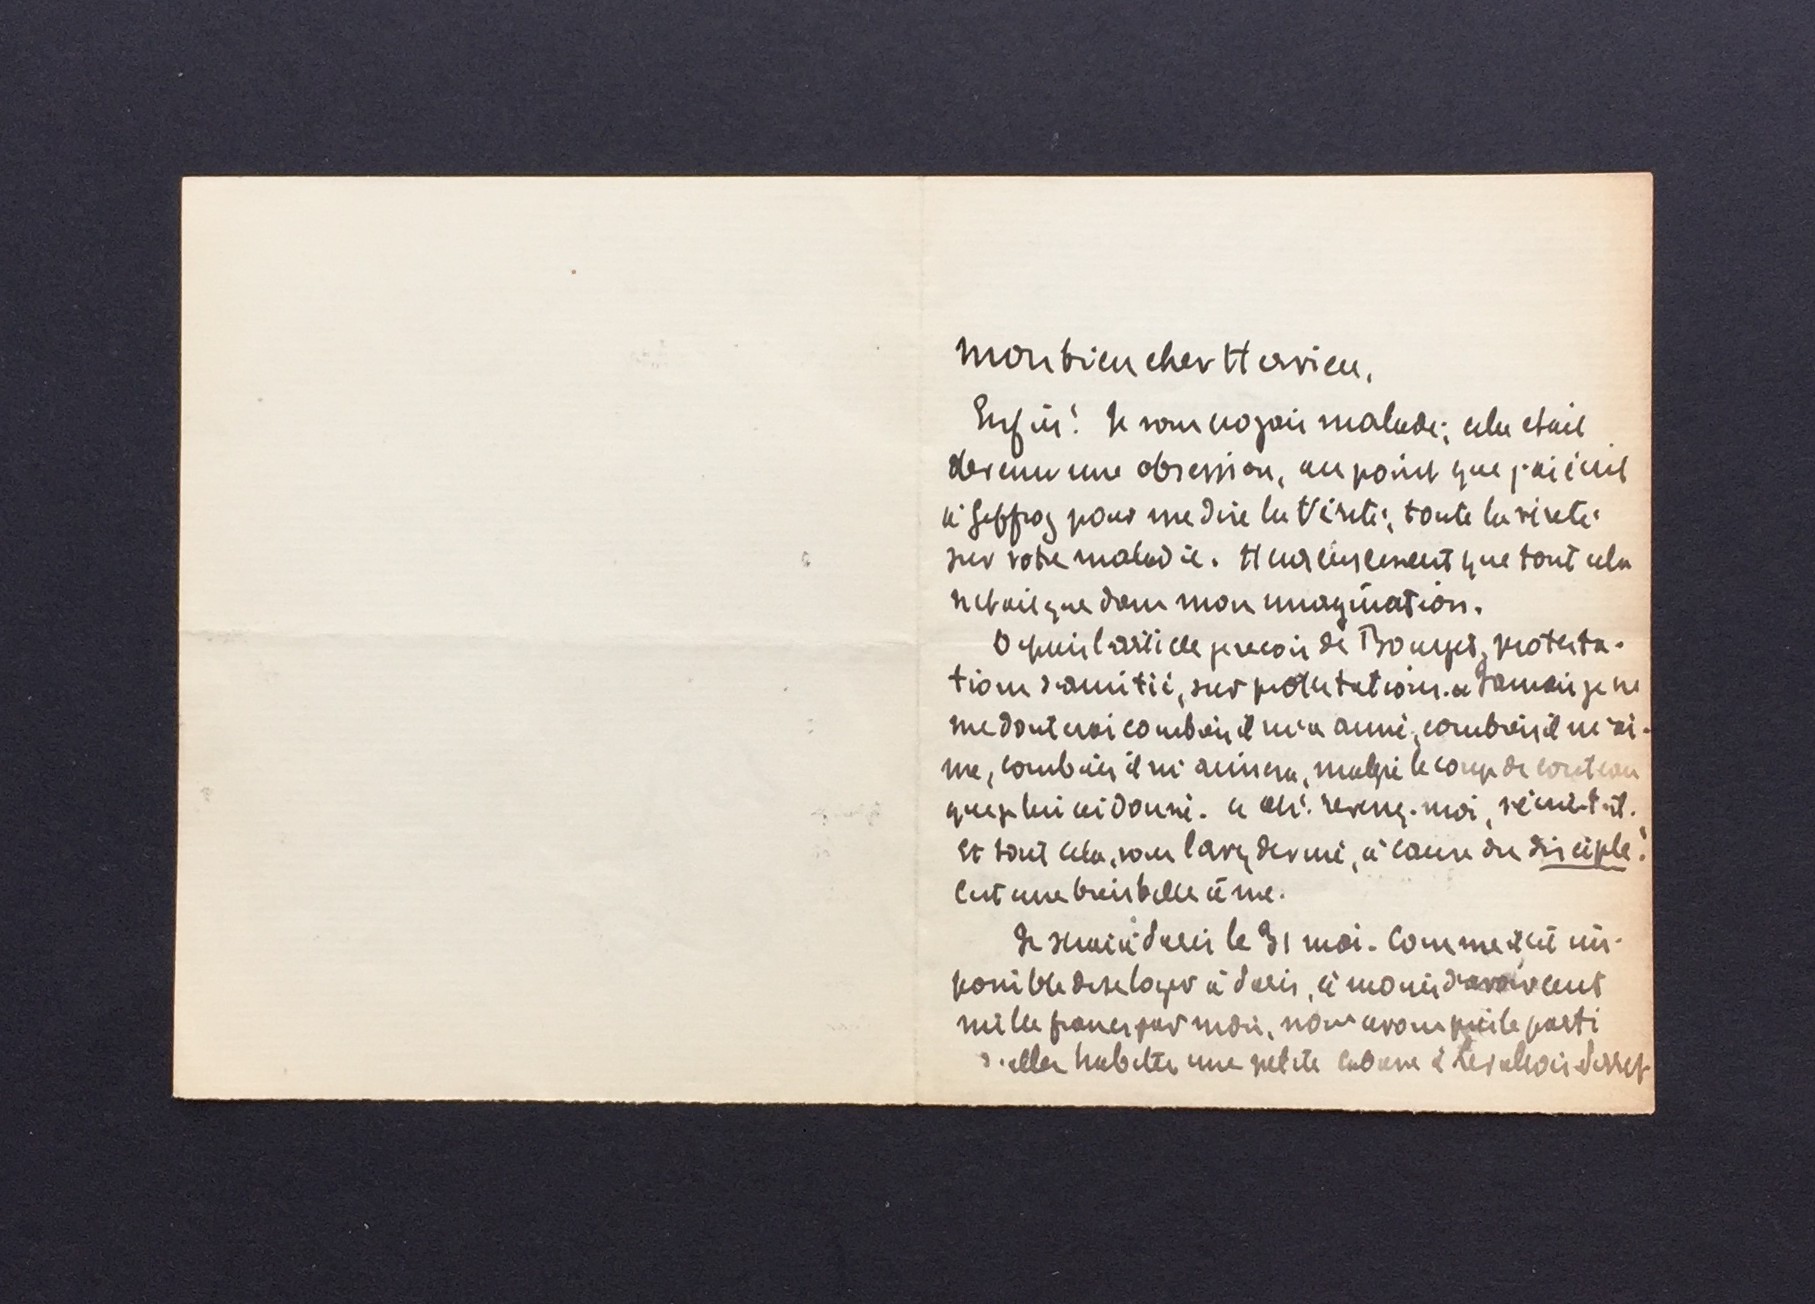 Mon bien cher Hervieu,
Enfin! Je vous croyais malade; cela était
devenu une obsession, au point que j'ai écrit
à Geffroy pour me dire la Vérité, toute la vérité
sur votre maladie. Heureusement que tout cela
n'était que dans mon imagination.
Depuis l'article je reçois de Bourget, protesta-
tions d'amitié, sur protestations. « Jamais je ne
me douterai combien il m'a aimé, combien il m'ai-
me, combien il m'aimera, malgré le coup de couteau
que je lui ai donné. « Ah! revenez-moi, s'écrie-t-il.
Et tout cela, vous l'avez deviné, à cause du disciple!
C'est une bien belle âme.
Je serai à Paris le 31 mai. Comme il est im-
possible de se loger à Paris, à moins d'avoir cent
mille francs par mois, nous avons pris le parti
d'aller habiter une petite cabane à Levallois-Perret